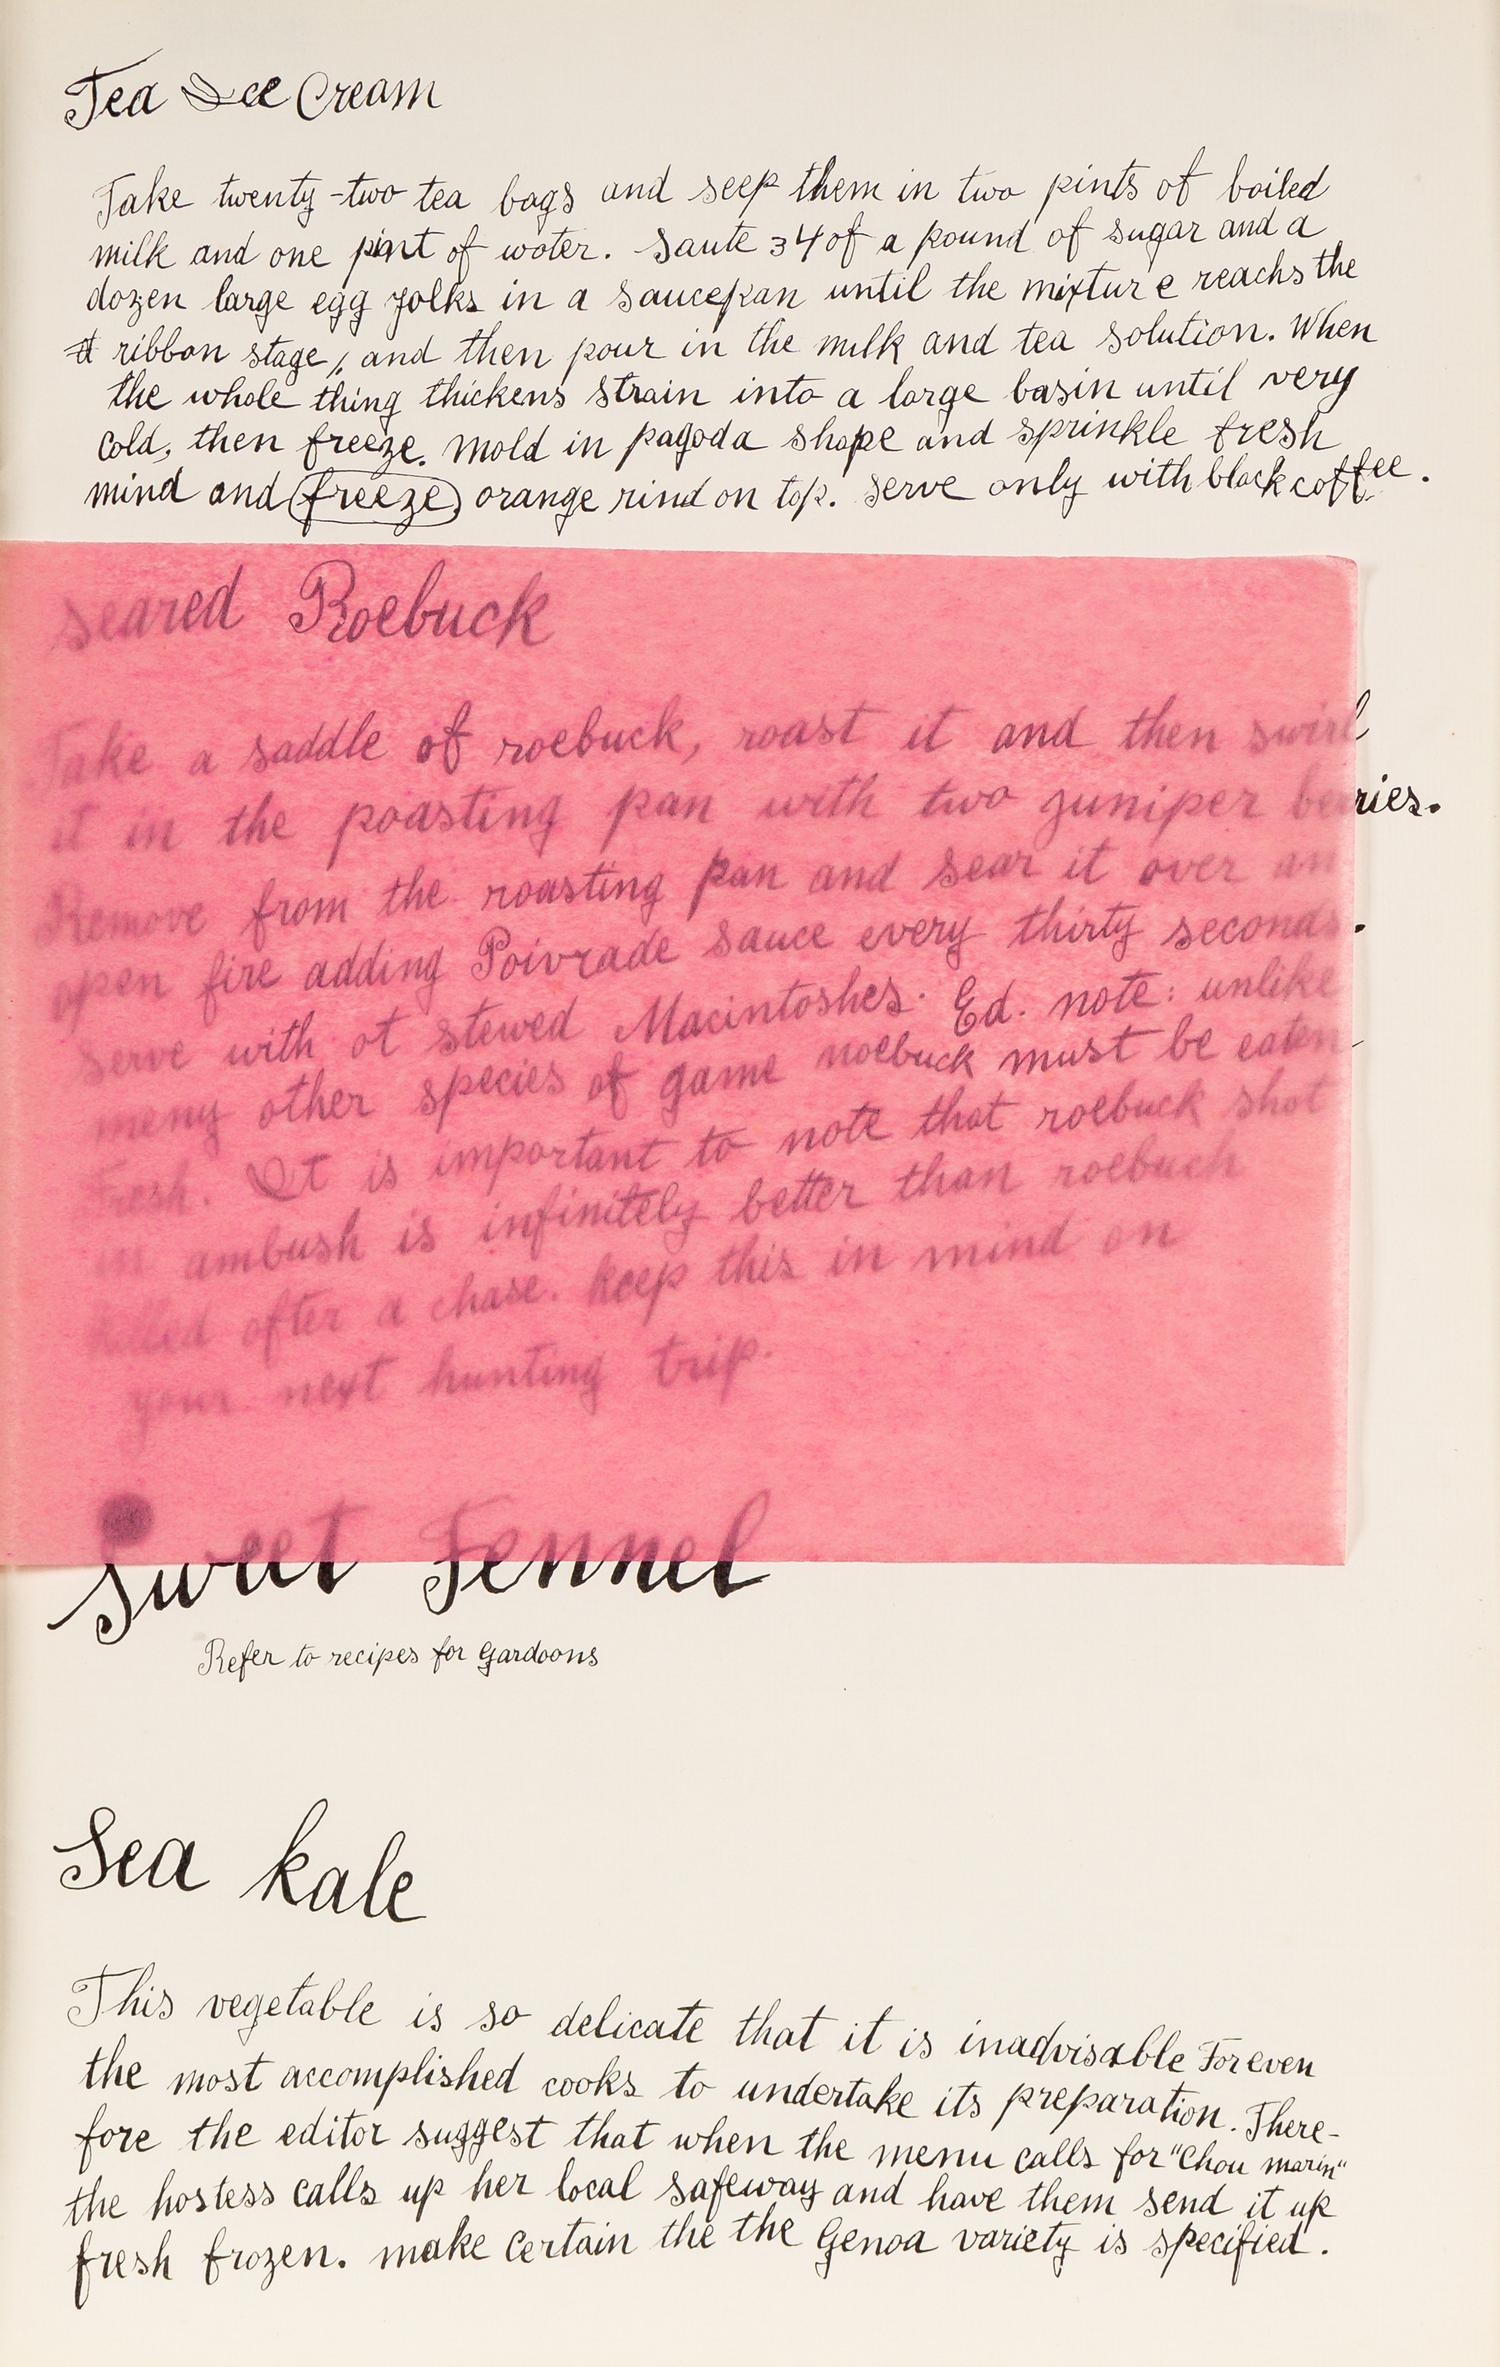 Tea Ice Cream
Take twenty-two tea bags and seep them in two pints of boiled
milk and one pint of woter. Saute 34 of a pound of sugar and a
dozen large egg yolks in a saucepan until the mixture reachs the
ribbon stage, and then pour in the milk and tea solution. When
the whole thing thickens strain into a large basin until very
cold, then freeze. Mold in pagoda shape and sprinkle fresh
mind and freeze orange rind on top. Serve only with black coffee.
Seared Roebuck
Take a saddle of roebuck, roast it and then swirl
it in the poasting pan with two juniper berries.
Remove from the roasting pan and sear it over an
open fire adding Poivrade sauce every thirty seconds.
Serve with ot stewed Macintoshes. Ed. note: unlike
meny other species of game noebuck must be eaten
Fresh. It is important to note that roebuck shot
in ambush is infinitely better than roebuch
killed after a chase. keep this in mind on
your next hunting trip.
Sweet Fennel
Refer to recipes for Gardoons
Sea kale
This vegetable is so delicate that it is inadvisable For even
the most accomplished cooks to undertake its preparation. There-
fore the editor suggest that when the menu calls for "Chou marin"
the hostess calls up her local safeway and have them send it up
fresh frozen. make certain the the Genoa variety is specified.